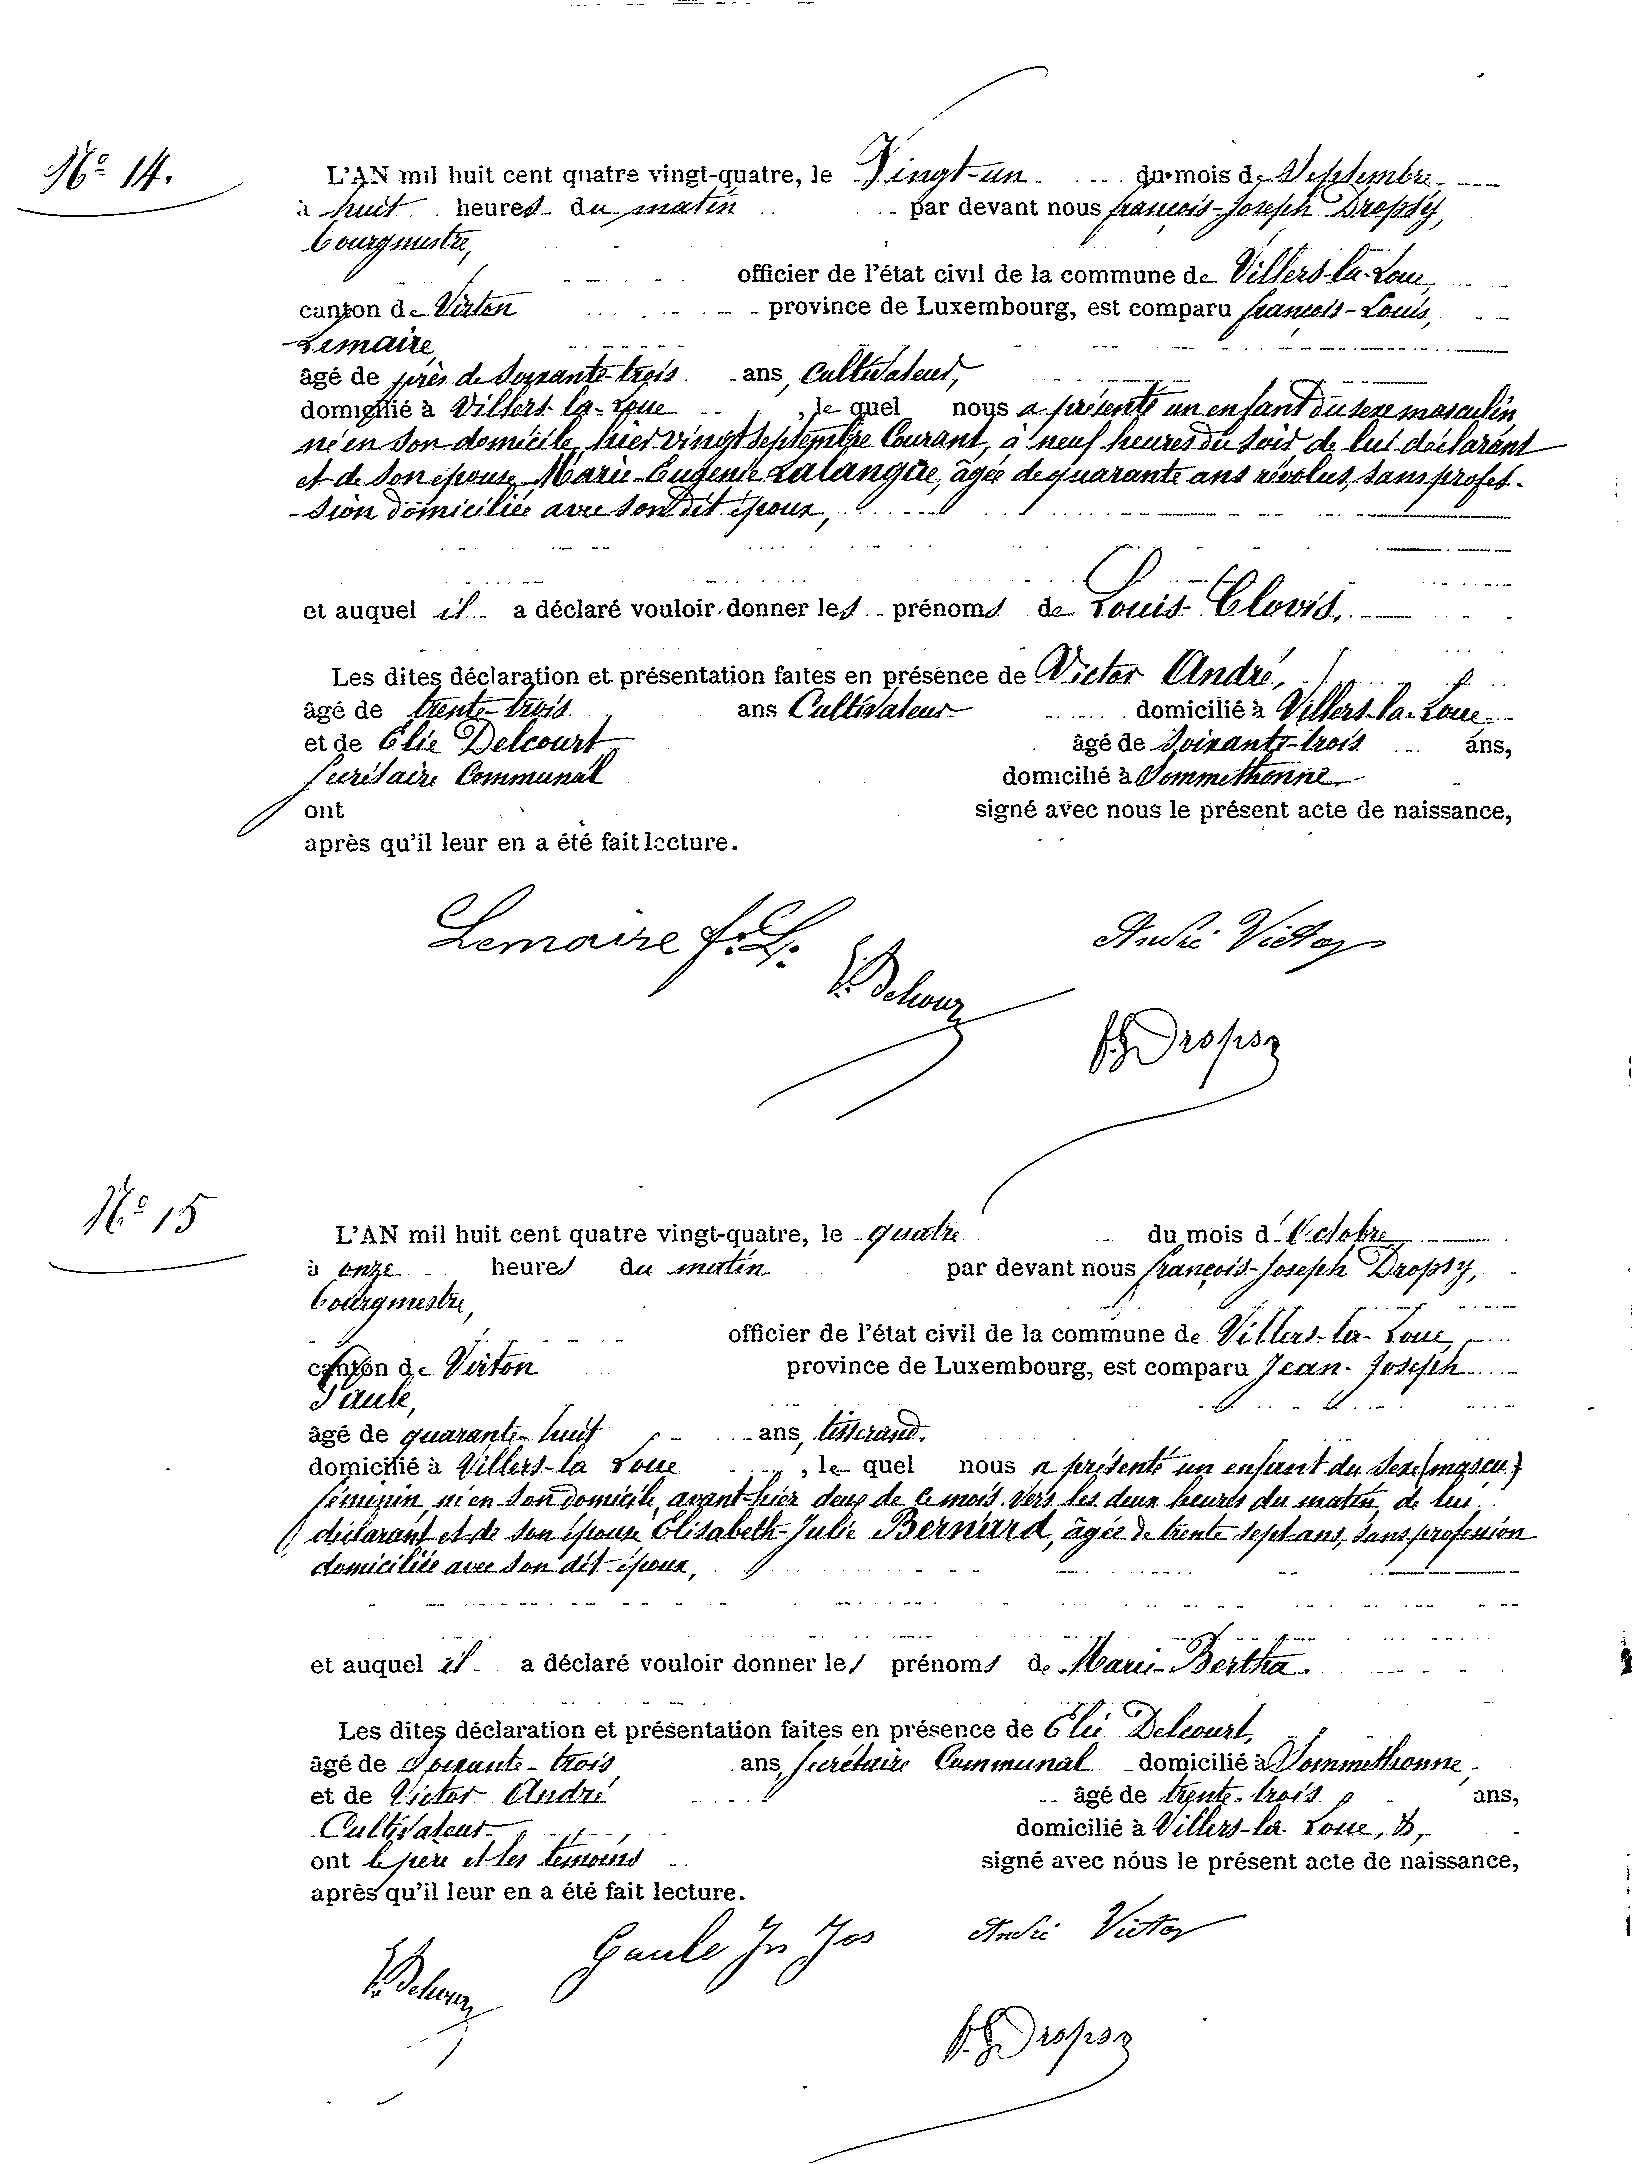 N° 14.
L'AN mil huit cent quatre vingt-quatre, le Vingt-un du mois de Septembre
à huit heures du matin par devant nous françois-Joseph Dropsy,
bourgmestre,
officier de l'état civil de la commune de Villers-la-Loue,
canton de Virton province de Luxembourg, est comparu françois-Louis,
Lemaire,
âgé de près de Soixante-trois ans, Cultivateur,
domicilié à Villers-la-Loue, le quel nous a présenté un enfant du sexe masculin,
né en son domicile, hier vingt Septembre Courant, à neuf heures du soir de lui déclarant
et de son épouse Marie-Eugénie Lalangue, âgée de quarante ans révolus, sans profes-
-sion domiciliée avec son dit époux,
et auquel il a déclaré vouloir donner les prénoms de Louis-Clovis.
Les dites déclaration et présentation faites en présence de Victor André,
âgé de trente-trois ans Cultivateur domicilié à Villers-la-Loue
et de Elie Delcourt âgé de Soixante-trois ans,
Secrétaire Communal domicilié à Sommethonne
ont signé avec nous le présent acte de naissance,
après qu'il leur en a été fait lecture.
Lemaire f. L. André Victor
E. Delcour
f J Dropsy
N° 15
L'AN mil huit cent quatre vingt-quatre, le quatre du mois d'Octobre
à onze heures du matin par devant nous françois-Joseph Dropsy,
bourgmestre,
officier de l'état civil de la commune de Villers-la-Loue,
canton de Virton province de Luxembourg, est comparu Jean-Joseph
Gaule,
âgé de quarante-huit ans, tisserand.
domicilié à Villers-la Loue, le quel nous a présenté un enfant du Sexe (mascu)
féminin, né en son domicile, avant-hier deux de ce mois vers les deux heures du matin, de lui
déclarant et de son épouse Elisabeth-Julie Bernard, âgée de trente sept ans, sans profession
domiciliée avec son dit époux,
et auquel il a déclaré vouloir donner les prénoms de Marie-Bertha.
Les dites déclaration et présentation faites en présence de Elie Delcourt,
âgé de Soixante-trois ans, Secrétaire Communal domicilié à Sommethonne,
et de Victor André âgé de trente-trois ans,
Cultivateur domicilié à Villers-la Loue,
ont le père et les témoins signé avec nous le présent acte de naissance,
après qu'il leur en a été fait lecture.
Gaule Jn Jos André Victor
E. Delcour
f. J Dropsy